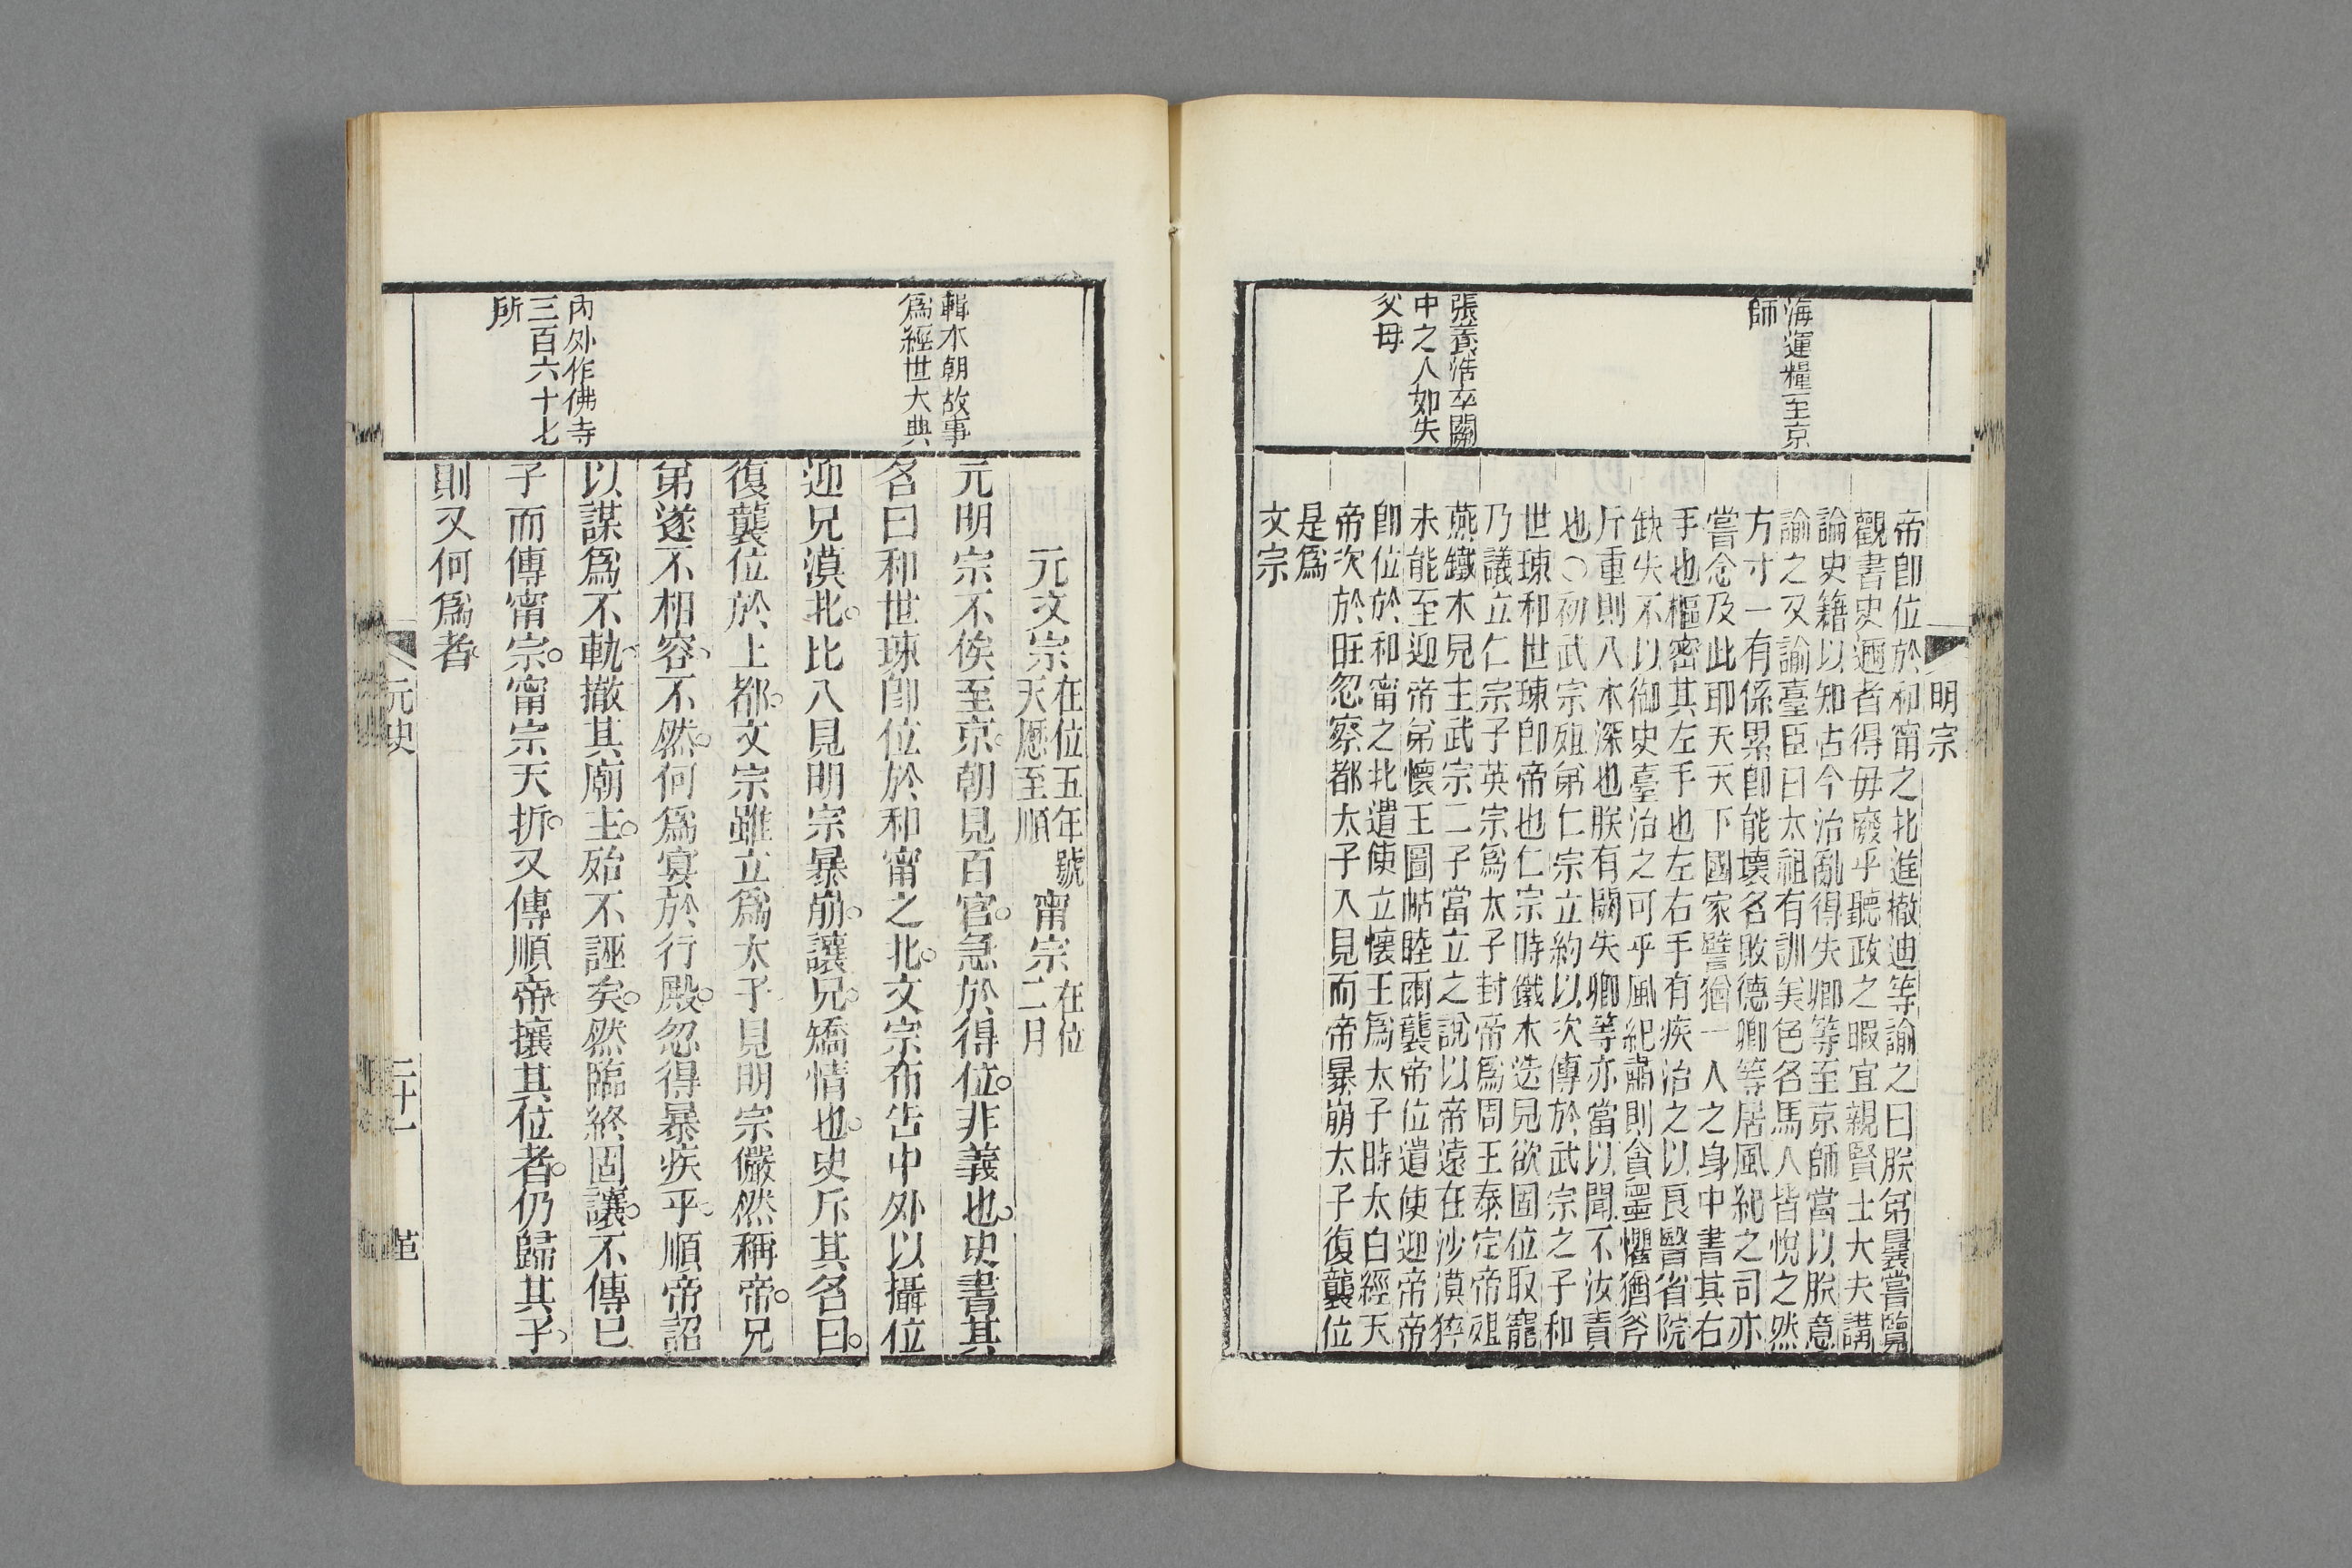 明宗
海運糧至京
師
張養浩卒關
中之人如失
父母
帝卽位於和甯之北進撤迪等諭之曰朕弟曩嘗覽
觀書史邇者得毋廢乎聽政之暇宜親賢士大夫講
論史籍以知古今治亂得失卿等至京師當以朕意
諭之又諭臺臣曰太祖有訓美色名馬人皆悅之然
方寸一有係累卽能壞名敗德卿等居風紀之司亦
嘗念及此耶天天下國家譬猶一人之身中書其右
手也樞密其左手也左右手有疾治之以良醫省院
缺失不以御史臺治之可乎風紀肅則貪墨懼猶斧
斤重則入木深也朕有闕失卿等亦當以聞不汝責
也○初武宗殂弟仁宗立約以次傳於武宗之子和
世㻋和世㻋卽帝也仁宗時鐵木迭兒欲固位取寵
乃議立仁宗子英宗爲太子封帝爲周王泰定帝殂
燕鐵木兒主武宗二子當立之說以帝遠在沙漠猝
未能至迎帝弟懷王圖帖睦爾襲帝位遣使迎帝帝
卽位於和甯之北遣使立懷王爲太子時太白經天
帝次於旺忽察都太子入見而帝暴崩太子復襲位
是爲
文宗
輯本朝故事
爲經世大典
內外作佛寺
三百六十七
所
元文宗 在位五年號 甯宗 在位
天厯至順 二月
元明宗不俟至京。朝見百官。急於得位。非義也。史書其
名曰和世㻋卽位於和甯之北。文宗布告中外以攝位
迎兄漠北。比入見明宗暴崩。讓兄。矯情也。史斥其名曰。
復襲位於上都。文宗雖立爲太子見明宗儼然稱帝。兄
弟遂不相容、不然。何爲宴於行殿。忽得暴疾乎。順帝詔
以謀爲不軌、撤其廟主。殆不誣矣。然臨終固讓。不傳己
子而傳甯宗。甯宗天折。又傳順帝、攘其位者。仍歸其子、
則又何爲者。
元史
二十一